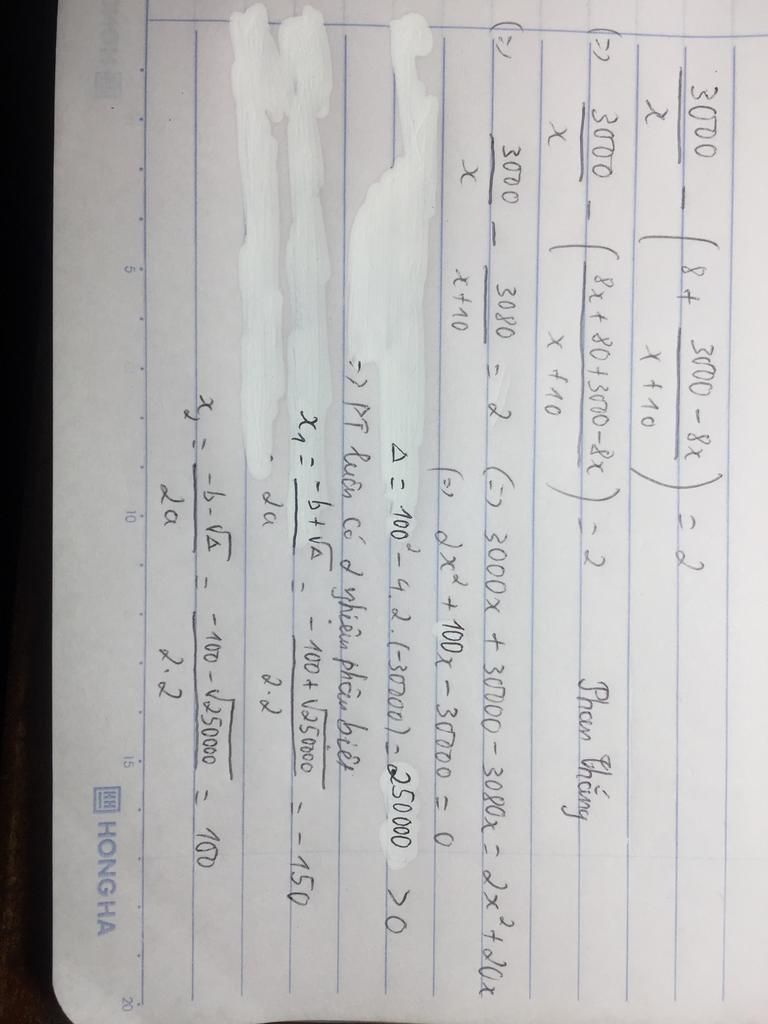 3000/x - (8 + (3000 - 8x)/(x + 10)) = 2
(=) 3000/x - ((8x + 80 + 3000 - 8x)/(x + 10)) = 2 Phan Thắng
(=) 3000/x - 3080/(x + 10) = 2 (=) 3000x + 30000 - 3080x = 2x² + 20x
(=) 2x² + 100x - 30000 = 0
Δ = 100² - 4.2.(-30000) = 250000 > 0
=) PT luôn có 2 nghiệm phân biệt
x₁ = (-b + √Δ)/2a = (-100 + √250000)/2.2 = -150
x₂ = (-b - √Δ)/2a = (-100 - √250000)/2.2 = 100
5 10 15 20
HONG HA